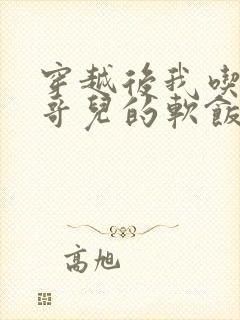 穿越後我喫
哥兒的軟飯
高旭